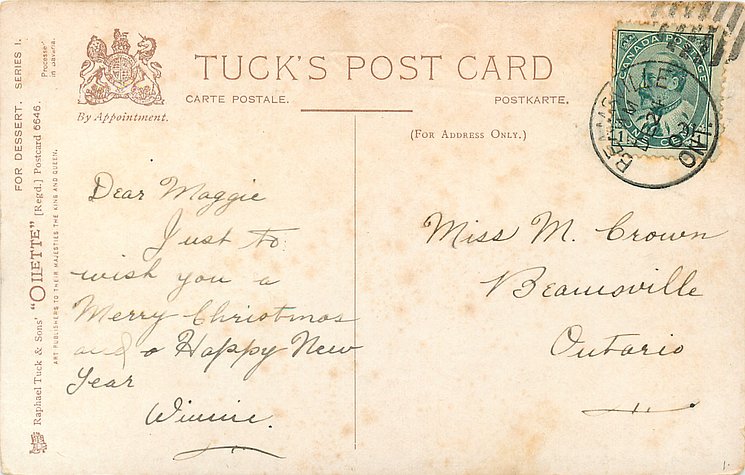 TUCK'S POST CARD
CARTE POSTALE.
POSTKARTE.
By Appointment.
(FOR ADDRESS ONLY.)
FOR DESSERT. SERIES I.
Processed in Bavaria.
Raphael Tuck & Sons' "OILETTE" [Regd.] Postcard 6646.
ART PUBLISHERS TO THEIR MAJESTIES THE KING AND QUEEN.
CANADA POSTAGE
ONE CENT
Dear Maggie
Just to
wish you a
Merry Christmas
and a Happy New
Year
Winnie.
Miss M. Crown
Beamsville
Ontario
1.